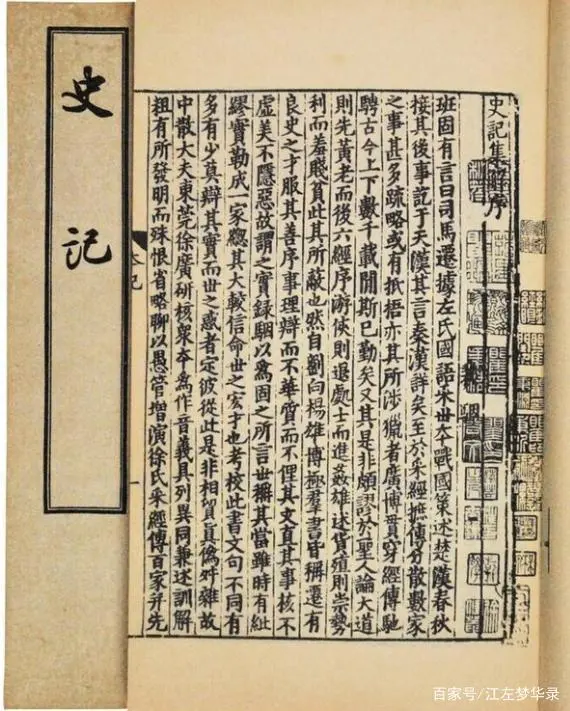 史記
史記集解序
班固有言曰司馬遷據左氏國語采世本戰國策述楚漢春秋
接其後事訖于天漢其言秦漢詳矣至於采經摭傳分散數家
之事甚多疏略或有抵捂亦其所涉獵者廣博貫穿經傳馳
騁古今上下數千載間斯已勤矣又其是非頗謬於聖人論大道
則先黃老而後六經序游俠則退處士而進姦雄述貨殖則崇勢
利而羞賤貧此其所蔽也然自劉向楊雄博極羣書皆稱遷有
良史之才服其善序事理辯而不華質而不俚其文直其事核不
虛美不隱惡故謂之實録駰以爲固之所言世稱其當雖時有紕
繆實勒成一家總其大較信命世之宏才也考校此書文句不同有
多有少莫辯其實而世之惑者定彼從此是非相貿真僞舛雜故
中散大夫東莞徐廣研核衆本爲作音義具列異同兼述訓解
粗有所發明而殊恨省略聊以愚管增演徐氏采經傳百家并先
百家号/江左梦华录